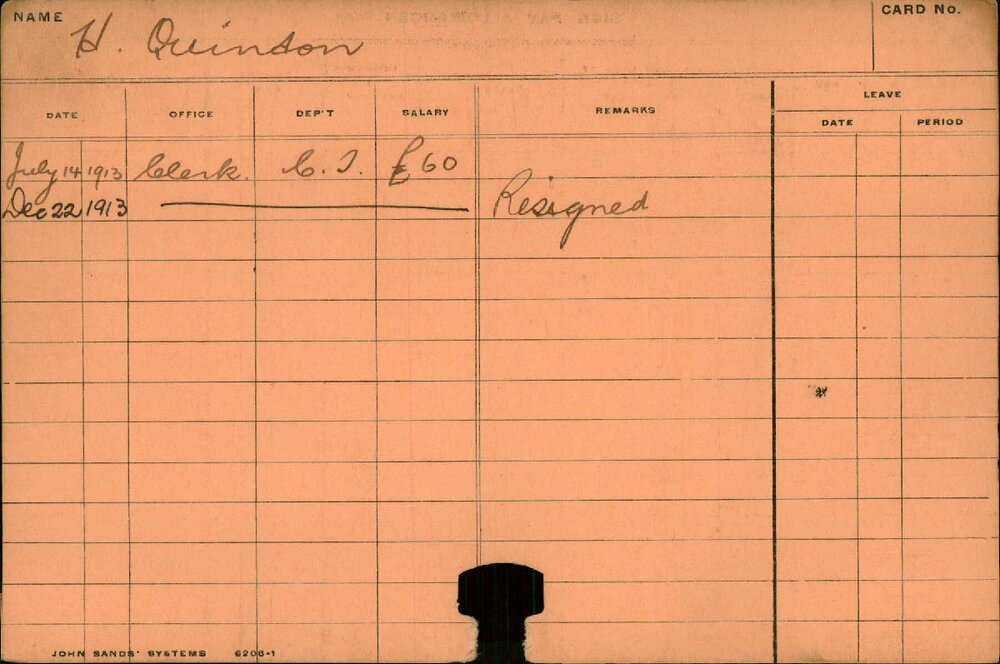 NAME H. Quinton CARD No.
DATE OFFICE DEP'T SALARY REMARKS LEAVE
DATE PERIOD
July 14 1913 Clerk. C. I. £60
Dec 22 1913 Resigned
JOHN SANDS' SYSTEMS 6206-1